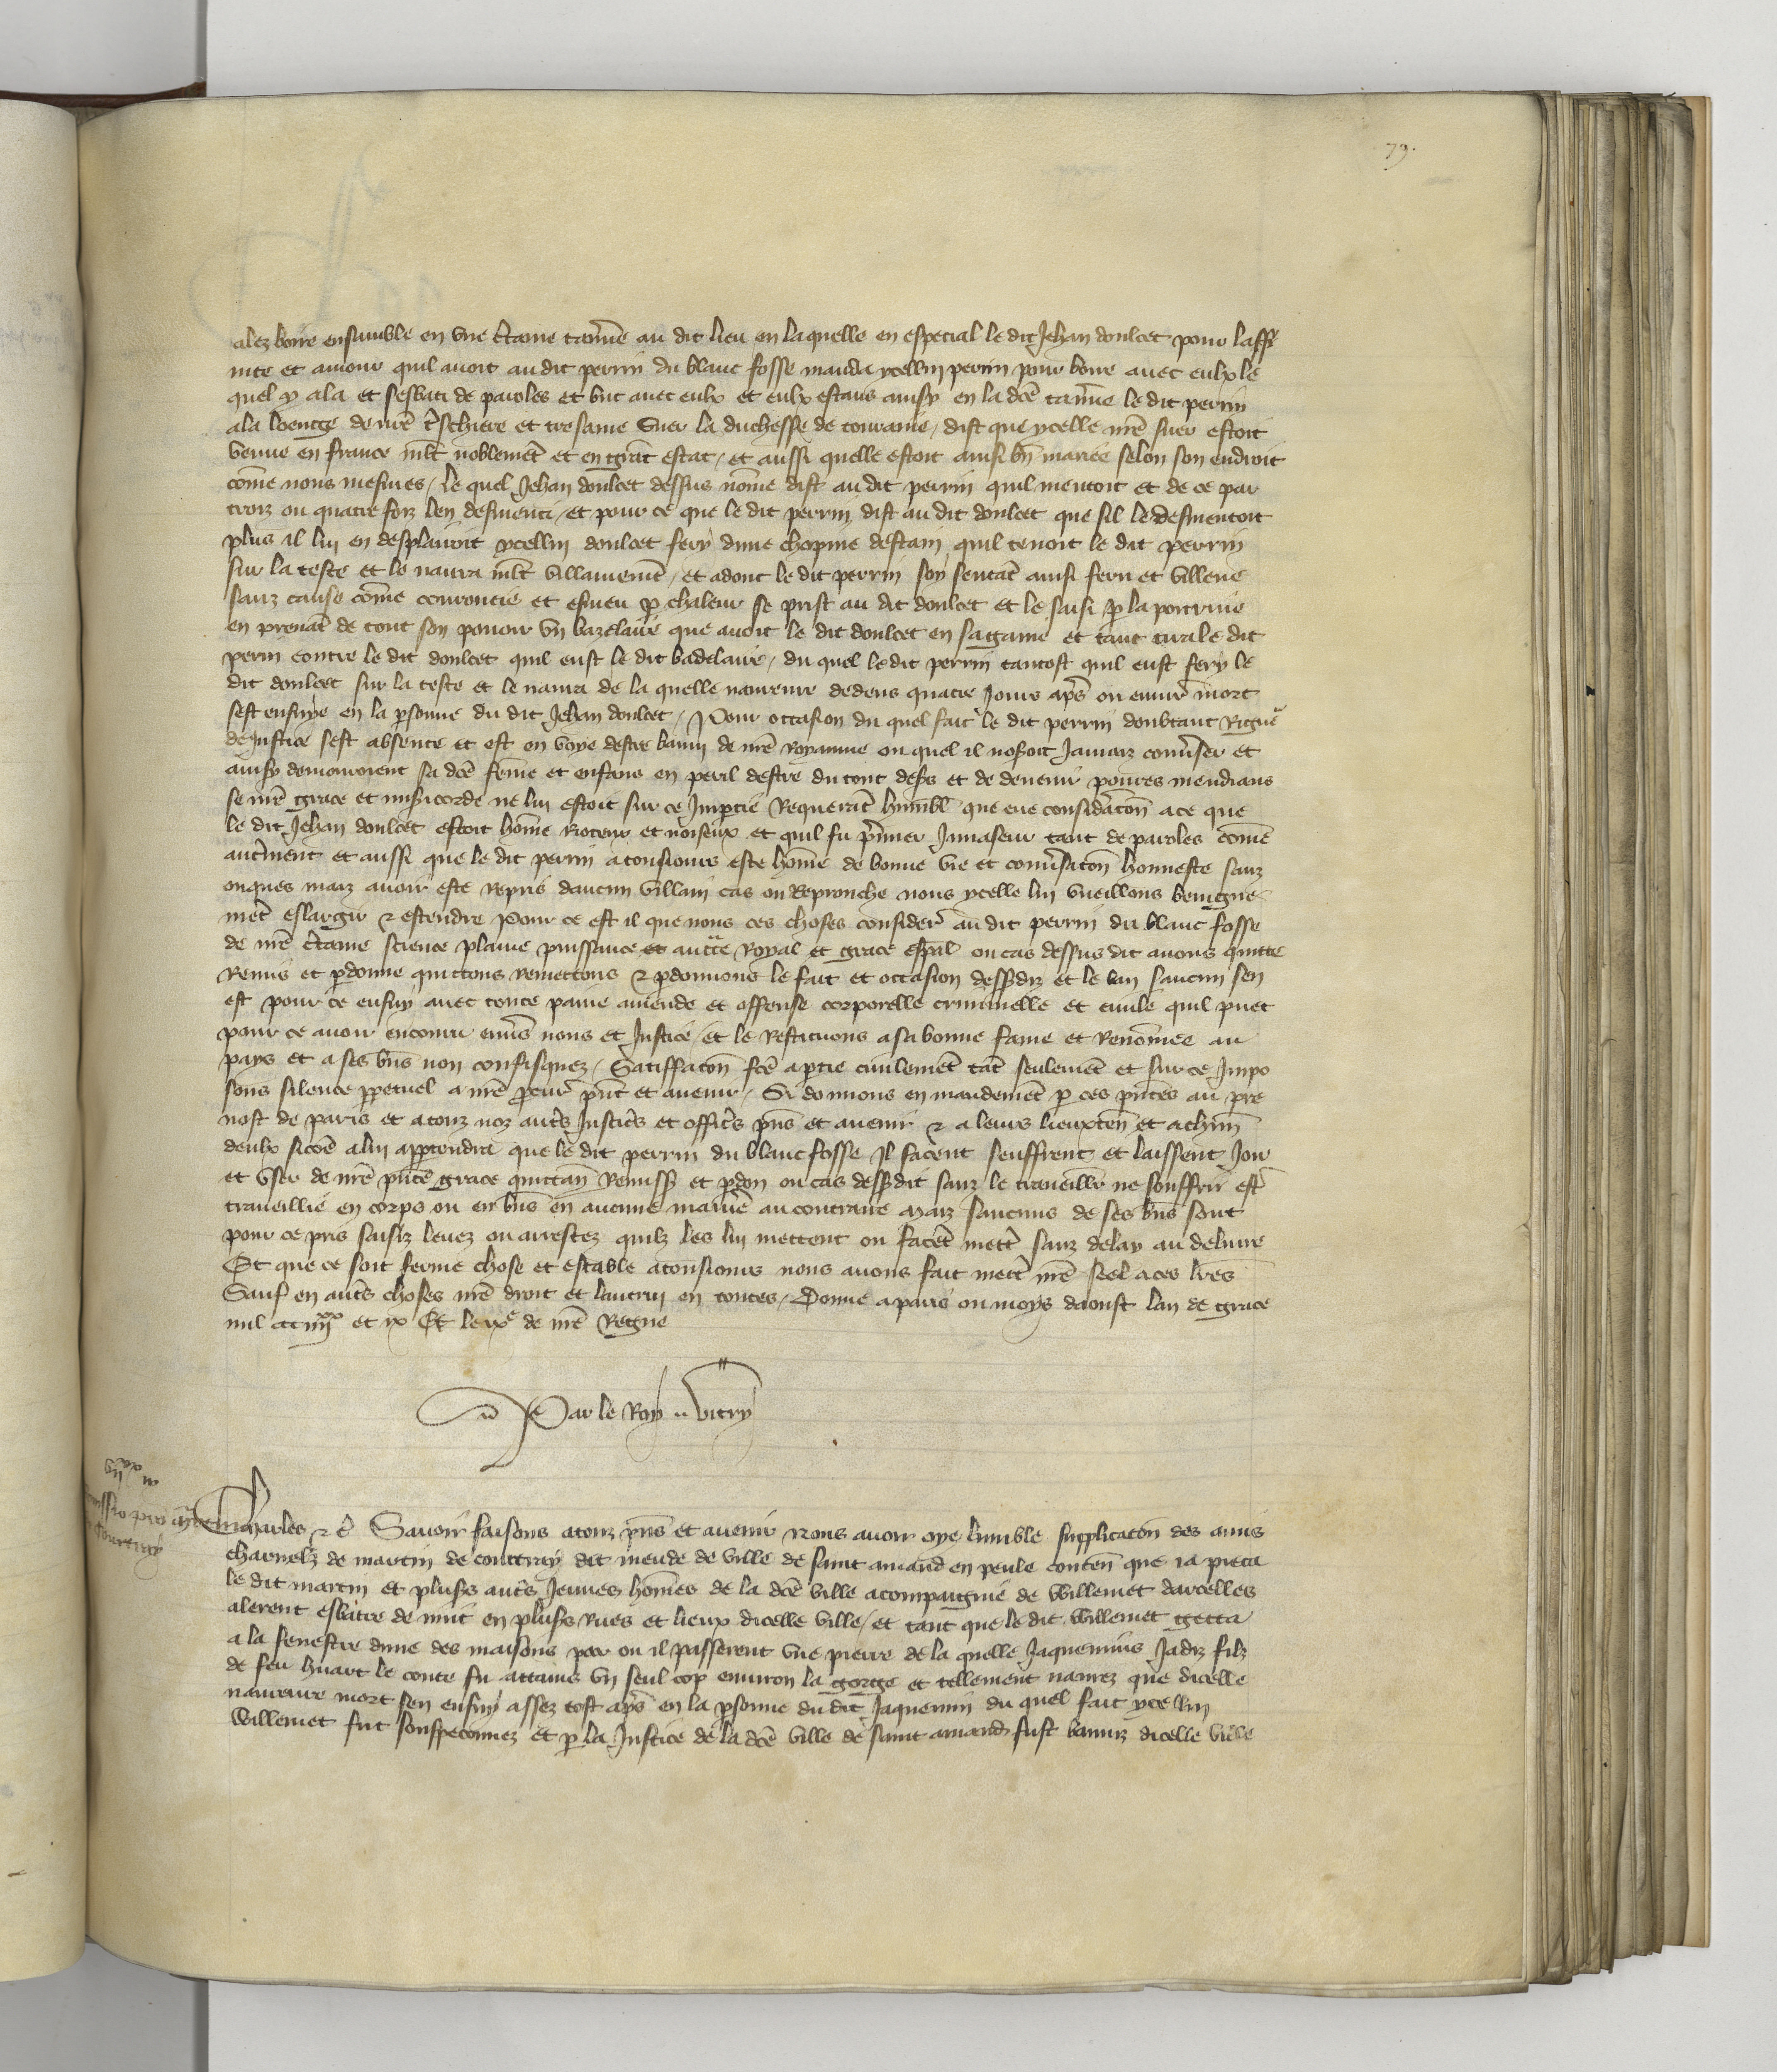 79.
alez boire ensemble en vne c̾taine tau̾ne au dit lieu en laquelle en especial le dit Jehan doulcet pour laffi
nite et amour quil auoit au dit perrin du blanc fosse manda ycellui perrin pour boire auec eulx le
quel y ala et sesbati de paroles et but auec eulx et eulx estans ainsy en la dcē tau̾ne le dit perrin
a la loenge de nrē t̾schiere et tresamee suer la duchesse de touraine / dist que ycelle nrē suer estoit
venue en france ml̄t noblemēt et en grāt estat / et aussi quelle estoit aussi bn̄ mariee selon son endroit
com̄e nous mesmes / le quel Jehan doulcet dessus nōme dist au dit perrin quil mentoit et de ce par
trois ou quatre foiz len desmenti / et pour ce que le dit perrin dist au dit doulcet que sil le desmentoit
plus il lui en desplairoit ycellui doulcet fery dune chopine destain quil tenoit le dit perrin
sur la teste et le naura ml̄t villainemēt / et adonc le dit perrin soy sentāt ainsi feru et villene
sanz cause cōme couroucie et esmeu p chaleur se prist au dit doulcet et le saisi p la poictrine
en prenāt de tout son pouoir vn bazelaire que auoit le dit doulcet en sa gaine et tant tira le dit
perrin contre le dit doulcet quil eust le dit badelaire / du quel le dit perrin tantost quil eust fery le
dit doulcet sur la teste et le naura de la quelle naureure dedens quatre jours ap̄s ou enuir̄ mort
sest ensuye en la psonne du dit Jehan doulcet / Pour occasion du quel fait le dit perrin doubtant Rigue̾
de justice sest absente et est en voye destre banny de nrē Royaume ou quel il noseroit jamaiz conu̾ser et
ainsy demouroient sa dcē fēme et enfans en peril destre du tout desers et de deuenir poures mendians
se nrē grace et misericorde ne lui estoit sur ce Impartie Requerāt humbl̄ que eue considācōn a ce que
le dit Jehan doulcet estoit hōme Rioteur et noiseux et quil fu p̄mier Inuaseur tant de paroles cōme
autrement et aussi que le dit perrin a tousiours este hōme de bonne vie et conu̾sacōn honneste sanz
onques maiz auoir este repris daucun villain cas ou Reprouche nous ycelle lui vueillons benigne
mēt eslargir ⁊ estendre Pour ce est il que nous ces choses consider̄ au dit perrin du blanc fosse
de nrē c̾taine science plaine puissance et auctē Royal et grace espāl ou cas dessus dit auons quitte
Remis et pdonne quittons remettons ⁊ pdonnons le fait et occasion dessusdiz et le ban saucun sen
est pour ce ensuy auec toute paine amende et offense corporelle criminelle et ciuile quil puet
pour ce auoir encouru enu̾s nous et justice / et le Restituons a sa bonne fame et Renōmee au
pays et a ses bn̄s non confisquez / Satiffacōn fcē a ptie ciuilemēt tāt seulemēt et sur ce Impo
sons silence ppetuel a nrē pcur̄ pn̄t et auenir / Si donnons en mandemēt p ces pn̄tes au pre
uost de paris et a touz noz aut̾s justic̾s et offic̾s pn̄s et auenir ⁊ a leurs lieuxten̄ et a chūn
deulx sicōe a lui appartendra que le dit perrin du blanc fosse Il facent seuffrent et laissent joir
et vser de nrē pn̄te grace quittan̄ remiss et pdon ou cas dessusdit sanz le traueillr̄ ne souffrir est̾
traueillie en corps ou en bn̄s en aucune manie̾ au contraire Maiz saucuns de ses bn̄s sont
pour ce pris saisiz leuez ou arrestez quilz les lui mettent ou facēt mett̾ sanz delay au deliure
Et que ce soit ferme chose et estable a tousiours nous auons fait mett̾ nrē seel a ces lr̄es
Sauf en aut̾s choses nrē droit et lautrui en toutes / Donne a paris ou moys daoust lan de grace
mil ccc iiiixx et ix Et le ixe de nrē Regne
Par le Roy .. Vitry
viixx iii
Charles ⁊ c̄ Sauoir faisons a touz pn̄s et auenir Nous auoir oye lumble supplicacōn des amis
charnelz de martin de courtray dit meude de ville de saint amand en peule conten̄ que ja pieca
le dit martin et pluss aut̾s jeunes hōmes de la dcē ville acompaignie de Willemet darcelles
alerent esbatre de nuit en pluss rues et lieux dicelle ville / et tant que le dit Willemet getta
a la fenestre dune des maisons par ou il passerent vne pierre de la quelle jaquemins jadiz filz
de feu huart le conte fu attains vn seul cop enuiron la gorge et tellement naurez que dicelle
naureure mort sen ensuy assez tost ap̄s en la psonne du dit jaquemin du quel fait ycellui
Willemet fut souspeconnez et p la justice de la dcē ville de saint amand fust banniz dicelle ville